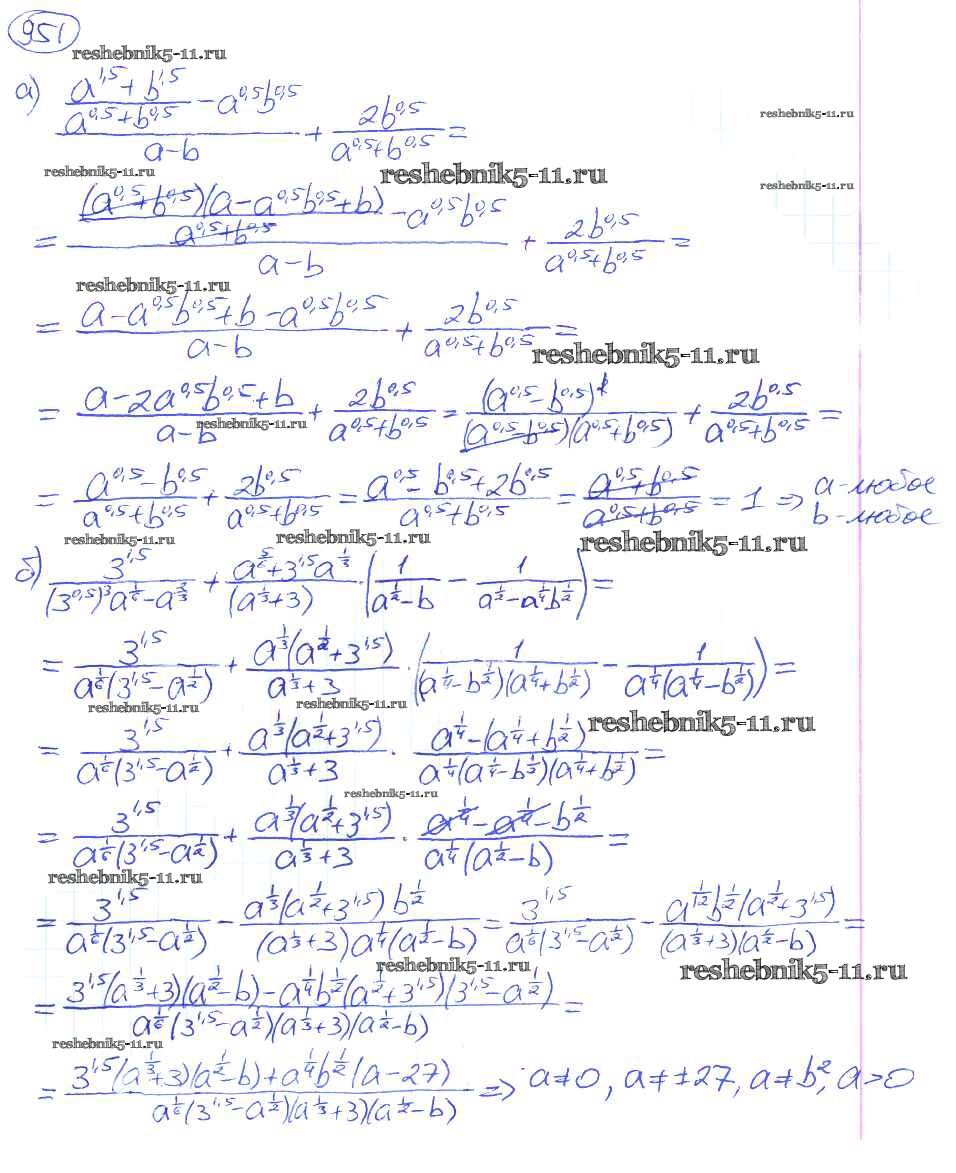 951
reshebnik5-11.ru
а) ((a^1,5 + b^1,5)/(a^0,5 + b^0,5) − a^0,5 b^0,5)/(a−b) + 2b^0,5/(a^0,5 + b^0,5) =
reshebnik5-11.ru
reshebnik5-11.ru
reshebnik5-11.ru
reshebnik5-11.ru
= ((a^0,5 + b^0,5)(a − a^0,5 b^0,5 + b)/(a^0,5 + b^0,5) − a^0,5 b^0,5)/(a−b) + 2b^0,5/(a^0,5 + b^0,5) =
reshebnik5-11.ru
= (a − a^0,5 b^0,5 + b − a^0,5 b^0,5)/(a−b) + 2b^0,5/(a^0,5 + b^0,5) =
reshebnik5-11.ru
= (a − 2a^0,5 b^0,5 + b)/(a−b) + 2b^0,5/(a^0,5 + b^0,5) = (a^0,5 − b^0,5)^2/((a^0,5 − b^0,5)(a^0,5 + b^0,5)) + 2b^0,5/(a^0,5 + b^0,5) =
reshebnik5-11.ru
= (a^0,5 − b^0,5)/(a^0,5 + b^0,5) + 2b^0,5/(a^0,5 + b^0,5) = (a^0,5 − b^0,5 + 2b^0,5)/(a^0,5 + b^0,5) = (a^0,5 + b^0,5)/(a^0,5 + b^0,5) = 1 ⇒ a-любое
b-любое
reshebnik5-11.ru
reshebnik5-11.ru
reshebnik5-11.ru
б) 3^1,5/((3^0,5)^3 a^1/6 − a^2/3) + (a^5/6 + 3^1,5 a^1/3)/(a^1/3 + 3) · (1/(a^1/2 − b) − 1/(a^1/2 − a^1/4 b^1/2)) =
= 3^1,5/(a^1/6(3^1,5 − a^1/2)) + a^1/3(a^1/2 + 3^1,5)/(a^1/3 + 3) · (1/((a^1/4 − b^1/2)(a^1/4 + b^1/2)) − 1/(a^1/4(a^1/4 − b^1/2))) =
reshebnik5-11.ru
reshebnik5-11.ru
reshebnik5-11.ru
= 3^1,5/(a^1/6(3^1,5 − a^1/2)) + a^1/3(a^1/2 + 3^1,5)/(a^1/3 + 3) · (a^1/4 − (a^1/4 + b^1/2))/(a^1/4(a^1/4 − b^1/2)(a^1/4 + b^1/2)) =
reshebnik5-11.ru
= 3^1,5/(a^1/6(3^1,5 − a^1/2)) + a^1/3(a^1/2 + 3^1,5)/(a^1/3 + 3) · (a^1/4 − a^1/4 − b^1/2)/(a^1/4(a^1/2 − b)) =
reshebnik5-11.ru
= 3^1,5/(a^1/6(3^1,5 − a^1/2)) − a^1/3(a^1/2 + 3^1,5) b^1/2/((a^1/3 + 3) a^1/4(a^1/2 − b)) = 3^1,5/(a^1/6(3^1,5 − a^1/2)) − a^1/12 b^1/2(a^1/2 + 3^1,5)/((a^1/3 + 3)(a^1/2 − b)) =
reshebnik5-11.ru
reshebnik5-11.ru
= (3^1,5(a^1/3 + 3)(a^1/2 − b) − a^1/4 b^1/2(a^1/2 + 3^1,5)(3^1,5 − a^1/2))/(a^1/6(3^1,5 − a^1/2)(a^1/3 + 3)(a^1/2 − b)) =
reshebnik5-11.ru
= (3^1,5(a^1/3 + 3)(a^1/2 − b) + a^1/4 b^1/2(a − 27))/(a^1/6(3^1,5 − a^1/2)(a^1/3 + 3)(a^1/2 − b)) ⇒ a≠0, a≠±27, a≠b^2, a>0